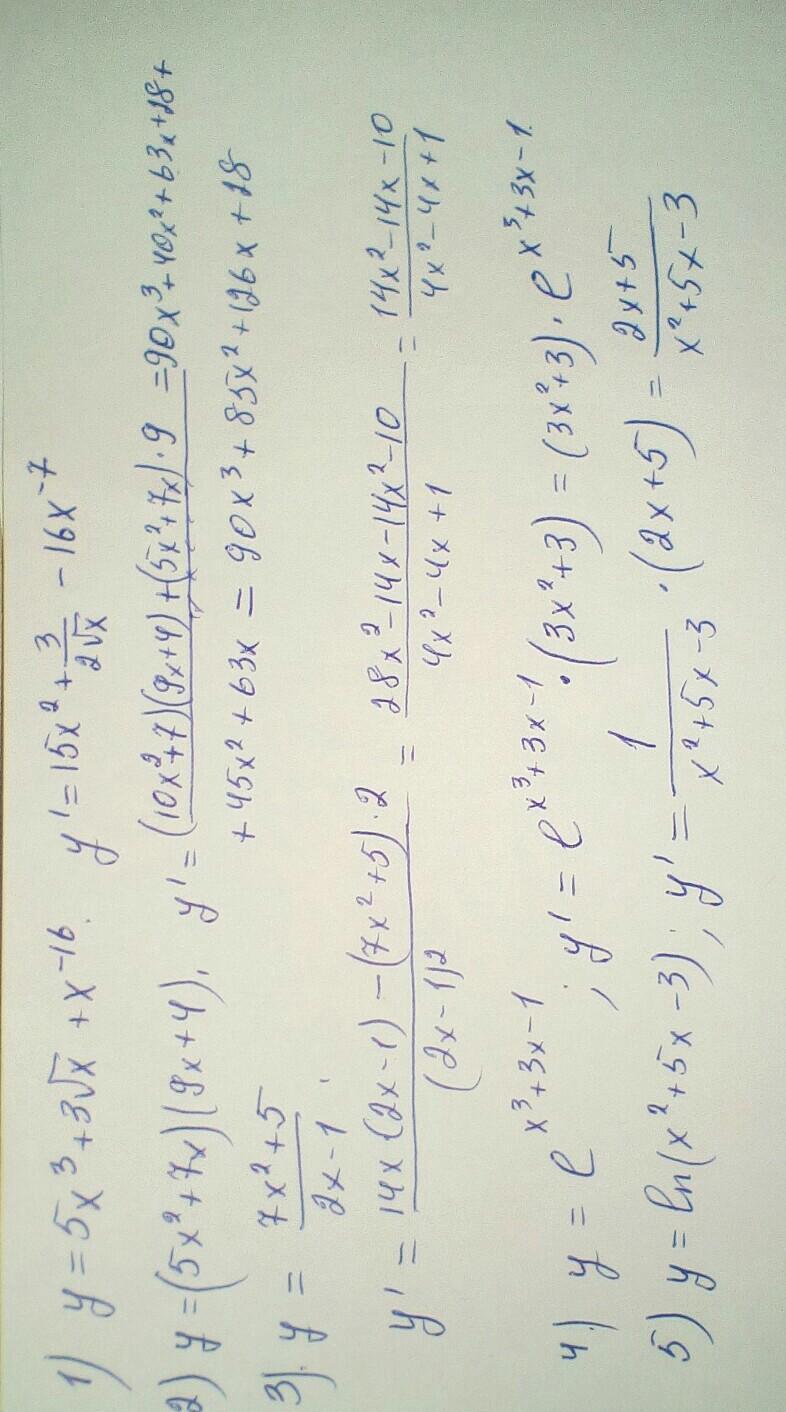 1) y = 5x³ + 3√x + x⁻¹⁶. y' = 15x² + 3/(2√x) - 16x⁻⁷
2) y = (5x² + 7x)(9x + 4). y' = (10x² + 7)(9x + 4) + (5x² + 7x)·9 = 90x³ + 40x² + 63x + 28 +
+ 45x² + 63x = 90x³ + 85x² + 126x + 28
3). y = (7x² + 5)/(2x - 1).
y' = (14x·(2x - 1) - (7x² + 5)·2)/(2x - 1)² = (28x² - 14x - 14x² - 10)/(4x² - 4x + 1) = (14x² - 14x - 10)/(4x² - 4x + 1)
4) y = e^(x³ + 3x - 1); y' = e^(x³ + 3x - 1)·(3x² + 3) = (3x² + 3)·e^(x³ + 3x - 1).
5) y = ln(x² + 5x - 3); y' = 1/(x² + 5x - 3)·(2x + 5) = (2x + 5)/(x² + 5x - 3)